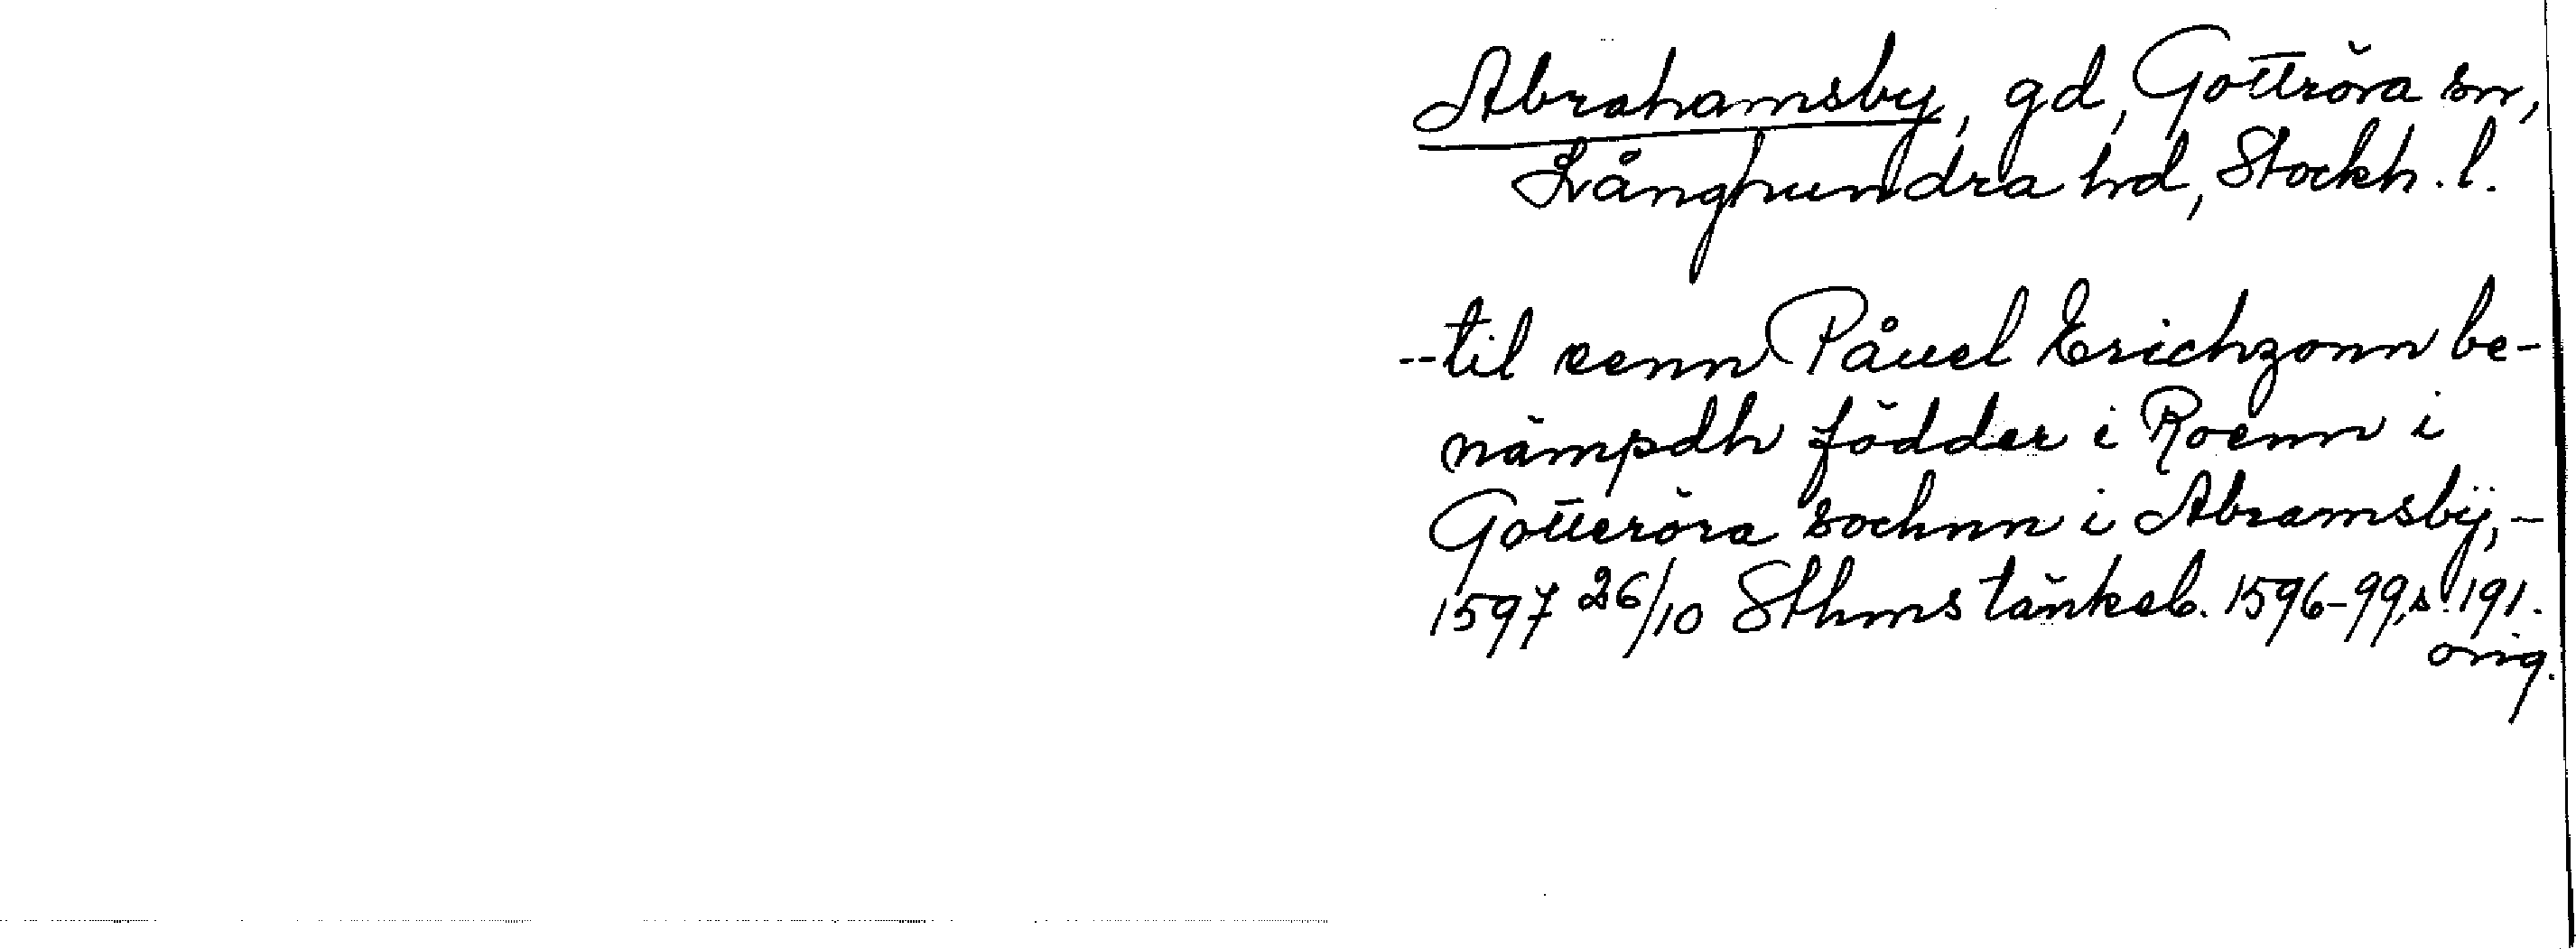 Abrahamsby, gd, Gottröra sn,
Långhundra hd, Stockh. l.
--til eenn Påuel Erichzonn be-
nämpdh födder i Roenn i
Gotteröra sochnn i Abramsbÿ,-
1597 26/10 Sthms tänkeb. 1596-99, s. 191.
orig.